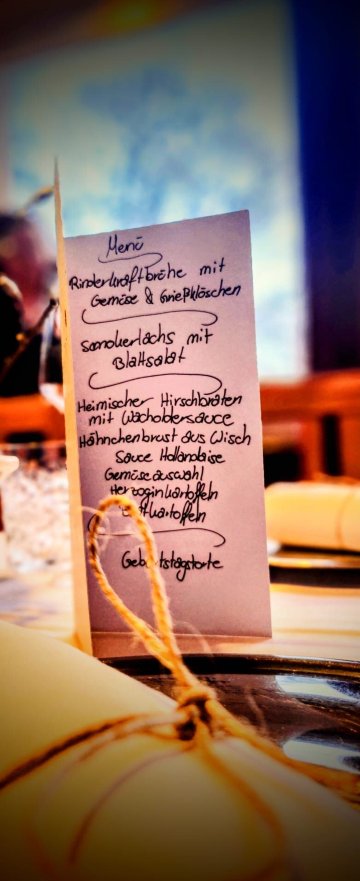 Menü
Rinderkraftbrühe mit
Gemüse & Grießklöschen
Sandwerlachs mit
Blattsalat
Heimischer Hirschbraten
mit Wacholdersauce
Hähnchenbrust aus Wisch
Sauce Hollandaise
Gemüseauswahl
Herzoginkartoffeln
Geburtstagstorte